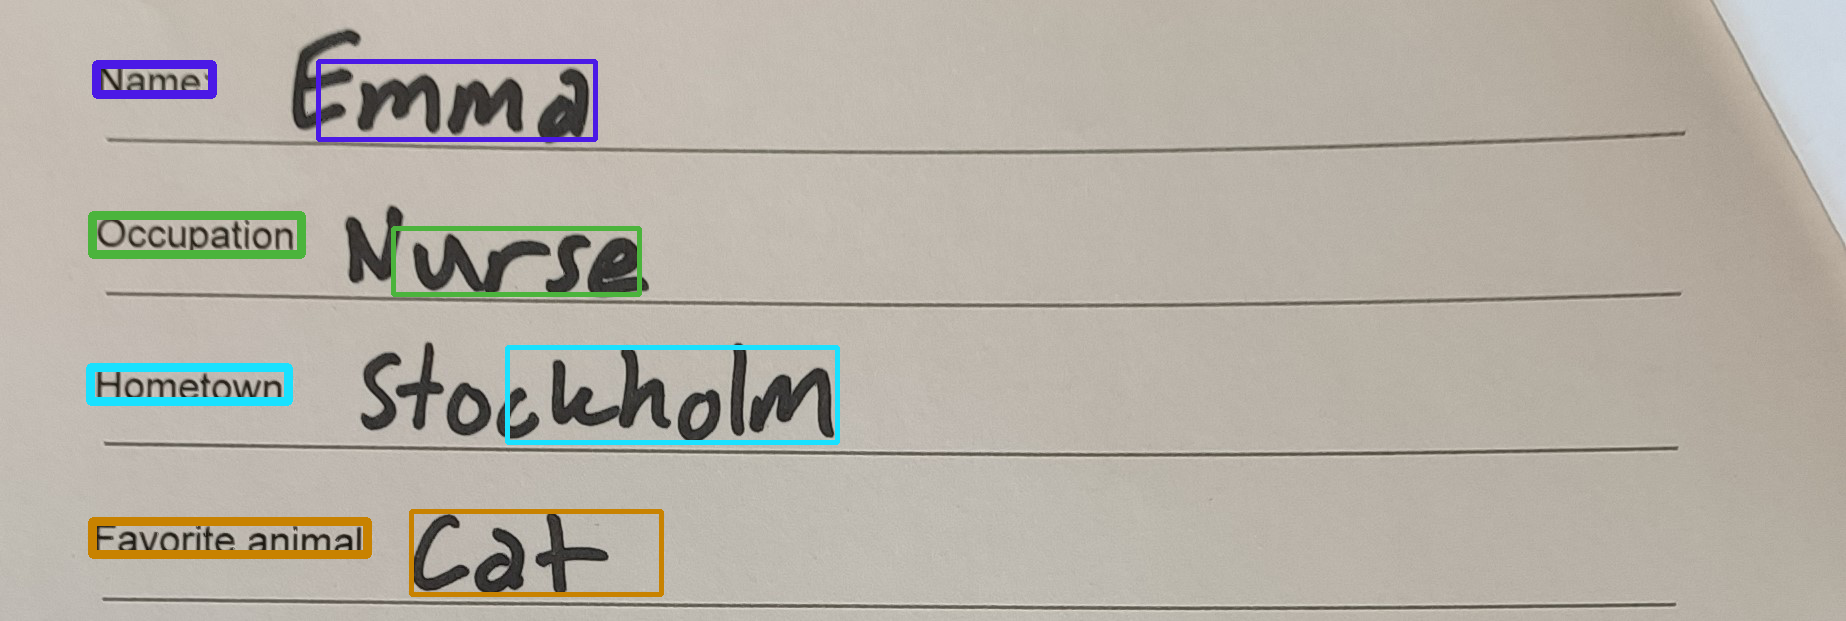 Name: Emma
Occupation Nurse
Hometown Stockholm
Favorite animal Cat